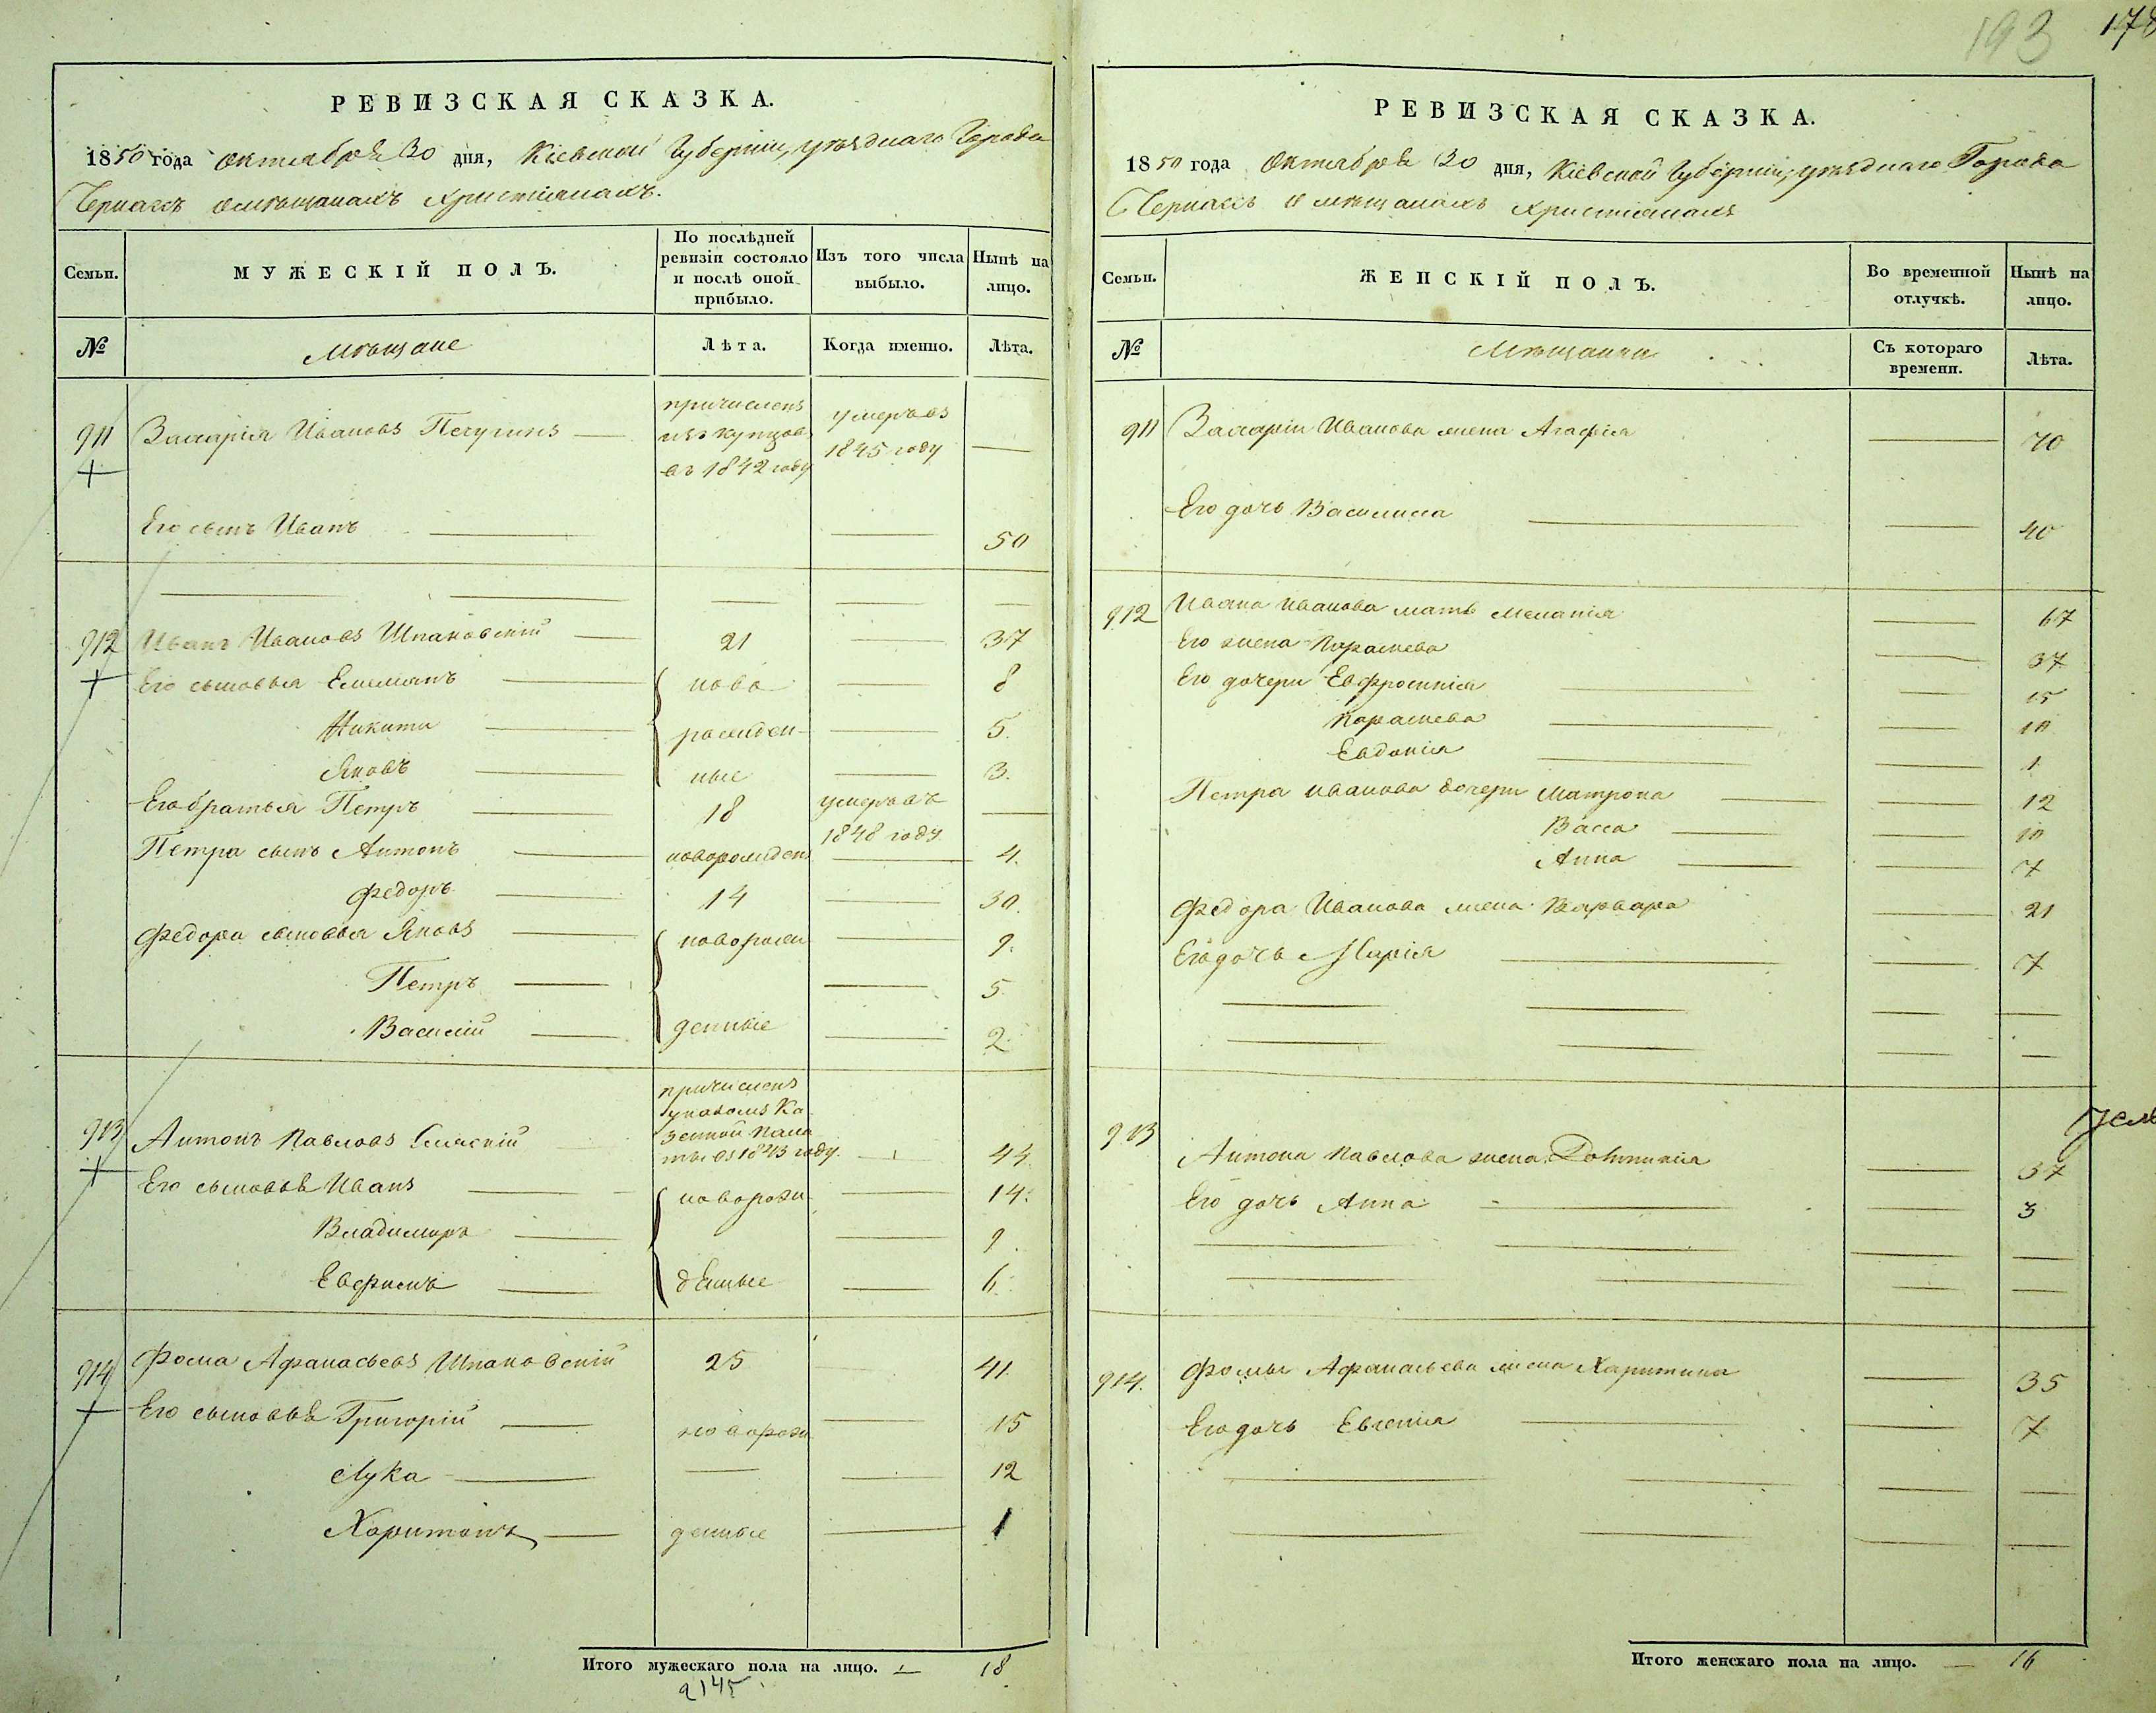 193 178
РЕВИЗСКАЯ СКАЗКА.
1850 года октября 30 дня, Кіевской Губерніи, уѣзднаго Города
Черкасъ о мѣщанахъ Христіанахъ.
Семьи.
МУЖЕСКІЙ ПОЛЪ.
По послѣдней ревизіи состояло и послѣ оной прибыло.
Изъ того числа выбыло.
Нынѣ на лицо.
№
Мѣщане
Лѣта.
Когда именно.
Лѣта.
911 Иванов
причисленъ изъ купцовъ въ 1842 году
умеръ въ 1845 году
Его сынъ Иванъ 50
912 Иванъ Ивановъ Шпаковскій 21 37
Его сыновья Емельянъ ново 8
Никита рожден- 5.
Яковъ ные 3.
Его братья Петръ 18 умеръ въ 1848 году
Петра сынъ Антонъ новорожден 4.
Федоръ 14 30.
Федора сыновья Яковъ новорож 9.
Петръ 5.
Василій денные 2
913 Антонъ Павловъ
причисленъ указомъ Казенной Палаты въ 1843 году. 44.
Его сыновья Иванъ новорож 14.
Владимиръ 9.
Евфимъ денные 6.
914 Фома Афанасьевъ Шпаковскій 25 41.
Его сыновья Григорій новорож 15
Лука 12
Харитонъ денные 1
Итого мужескаго пола на лицо. 18
2145.
РЕВИЗСКАЯ СКАЗКА.
1850 года Октября 30 дня, Кіевской Губерніи, уѣзднаго Города
Черкасъ о мѣщанахъ Христіанахъ
Семьи.
ЖЕНСКІЙ ПОЛЪ.
Во временной отлучкѣ.
Нынѣ на лицо.
№
Мѣщанки
Съ котораго времени.
Лѣта.
911 Иванова жена Агафія 70
Его дочь Василиса 40
912 Ивана Иванова мать Меланія 67
Его жена Параскева 37
Его дочери Евфросинія 15
Параскева 10
Евдокія 1.
Петра Иванова дочери Матрона 12
Васса 10
Анна 7
Федора Иванова жена Варвара 21
Его дочь Марія 7
913 Антона Павлова жена 37
Его дочь Анна 3
914. Фомы Афанасьева жена Харитина 35
Его дочь Евгенія 7
Итого женскаго пола на лицо. 16